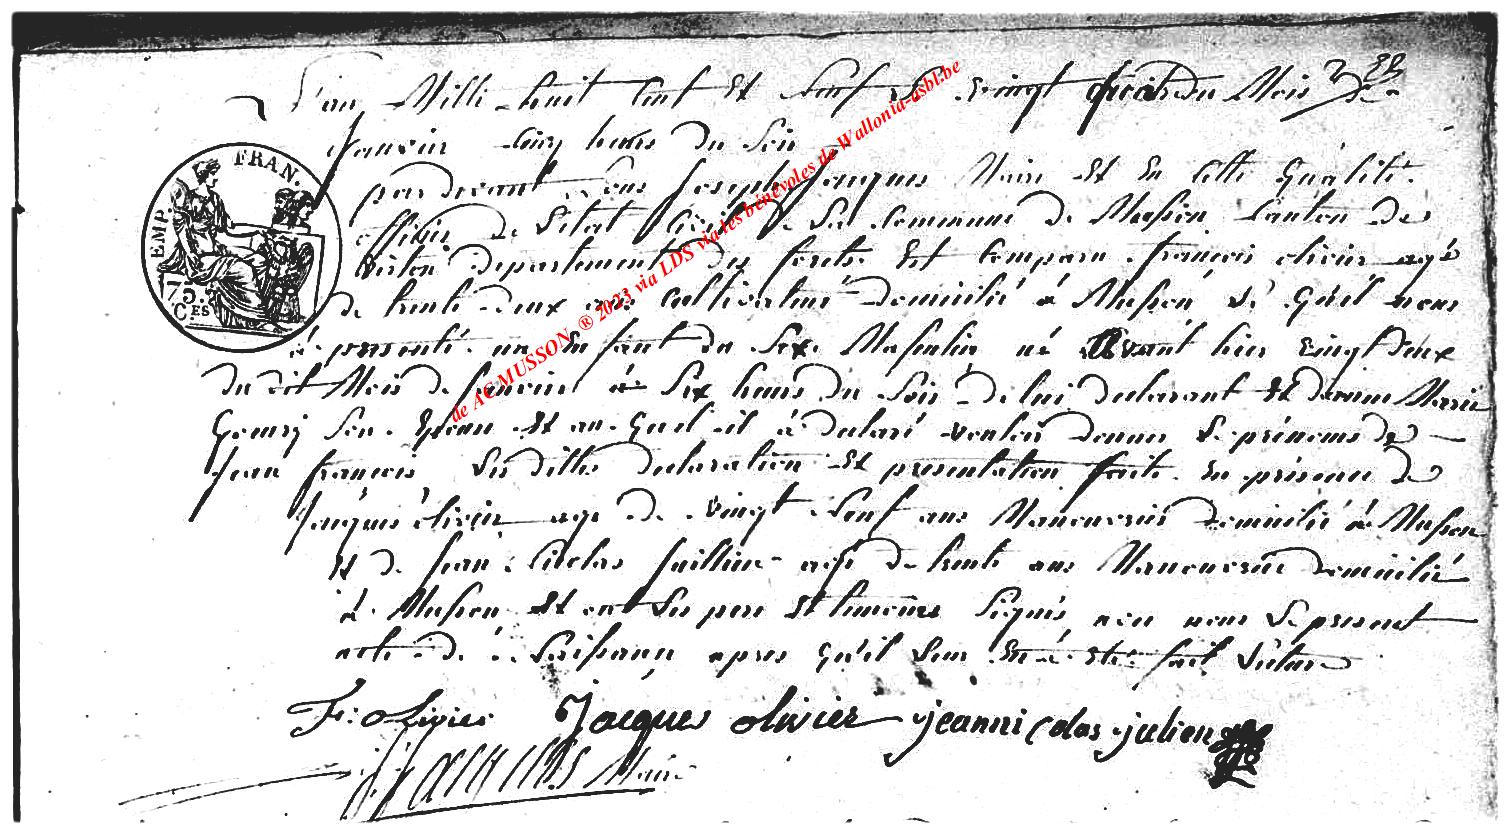 23
L'an Mille huit Cent Et neuf Le vingt quatr du Mois De
Janvier Cinq heures du Soir
par devant Nous Joseph Jacques Maire Et En Cette Qualité
officier De L'état Civil De La Commune De Musson Canton De
Virton Departement Des forêts Est Comparu françois olivier agé
EMP. FRAN.
75. C.ES
de trente Deux ans Cultivateur Domicilié à Musson Le Quel nous
à presenté un Enfant du Sexe Masculin né Avant hier vingt Deux
du dit Mois De Janvier à Six heures du Soir De lui declarant Et De Marie
Son Epouse Et au Quel il à declaré vouloir donner Le prénoms De
Jean françois Les dittes declaration Et presentation faite En présence De
Jacques olivier agé De vingt Neuf ans Manouvrier Domicilié à Musson
Et De Jean Nicolas Jullien agé De trente ans Manouvrier Domicilié
à Musson Et ont Les pere Et temoins Signés avec nous Le present
acte De Naissance apres Qu'il Leur En à Eté fait Lecture
F: olivier Jacques olivier jeanni colas julien
J. Jacques Maire
de AC MUSSON ® 2023 via LDS via les bénévoles de Wallonia-asbl.be